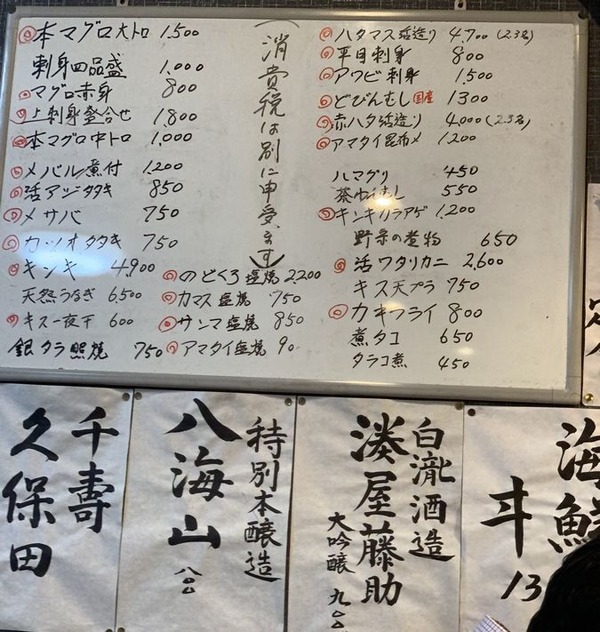 本マグロ大トロ 1.500
刺身四品盛 1.000
マグロ赤身 800
上刺身盛合せ 1.800
本マグロ中トロ 1.000
メバル煮付 1.200
活アジタタキ 850
メサバ 750
カツオタタキ 750
キンキ 4.900
天然うなぎ 6.500
キス一夜干 600
銀タラ照焼 750
のどくろ塩焼 2.200
カマス塩焼 750
サンマ塩焼 850
アマタイ塩焼
(消費税は別に申受ます)
ハタマス活造り 4.700 (2.3名)
平目刺身 800
アワビ刺身 1.500
どびんむし 国産 1300
赤ハタ活造り 4.000 (2.3名)
アマタイ昆布〆 1200
ハマグリ 450
茶わんむし 550
キンキカラアゲ 1.200
野菜の煮物 650
活ワタリカニ 2.600
キス天プラ 750
カキフライ 800
煮タコ 650
タラコ煮 450
海鮮
丼
13
白瀧酒造
湊屋藤助
大吟醸 九〇〇
特別本醸造
八海山
八〇〇
千壽
久保田